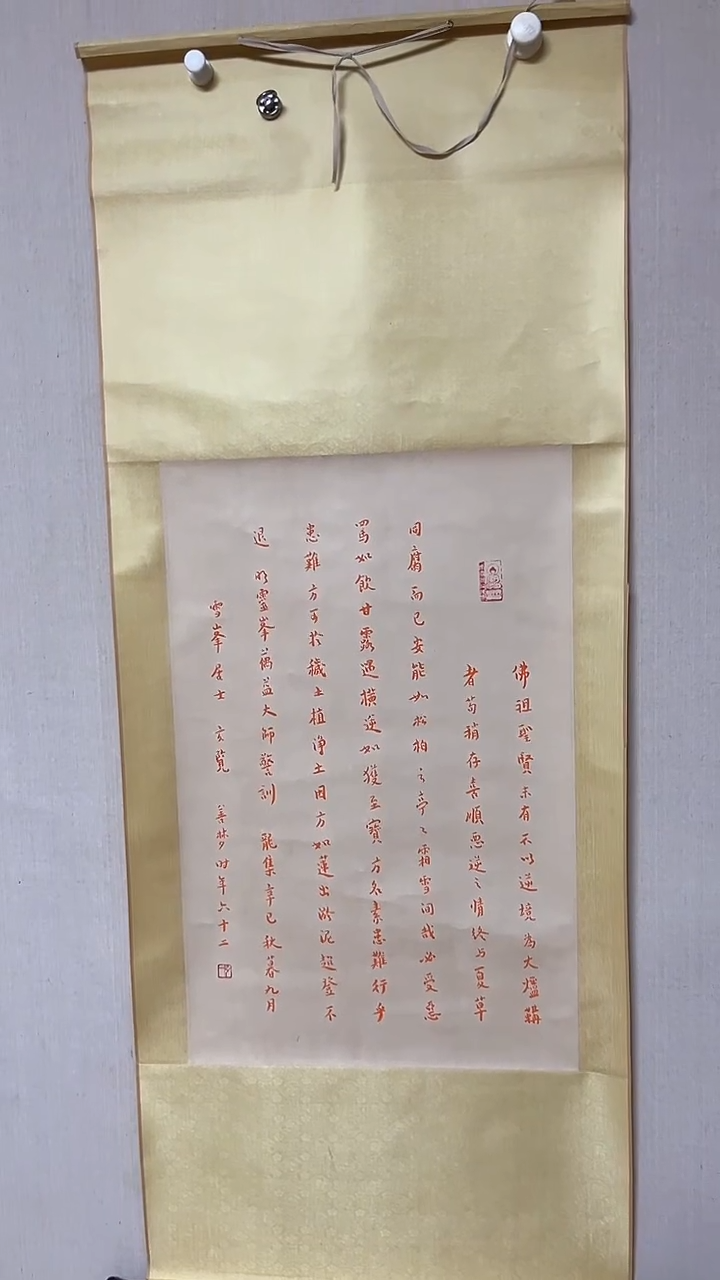 佛祖聖賢未有不以逆境為大爐鞴
者苟稍存喜順惡逆之情終与夏草
同腐而已安能如松柏之亭々霜雪间哉必受惡
罵如飲甘露遇橫逆如獲至寶方名素患難行乎
患難方可於穢土植淨土因方如蓮出淤泥超登不
退 明靈峯蕅益大師警訓 龍集辛巳秋暮九月
雪峯居士 玄覽 善夢时年六十二